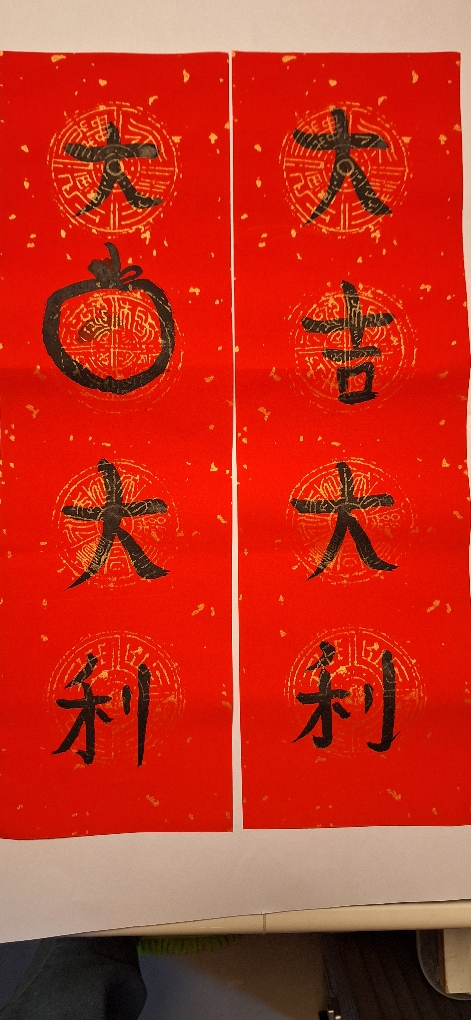 大吉大利
大 大利